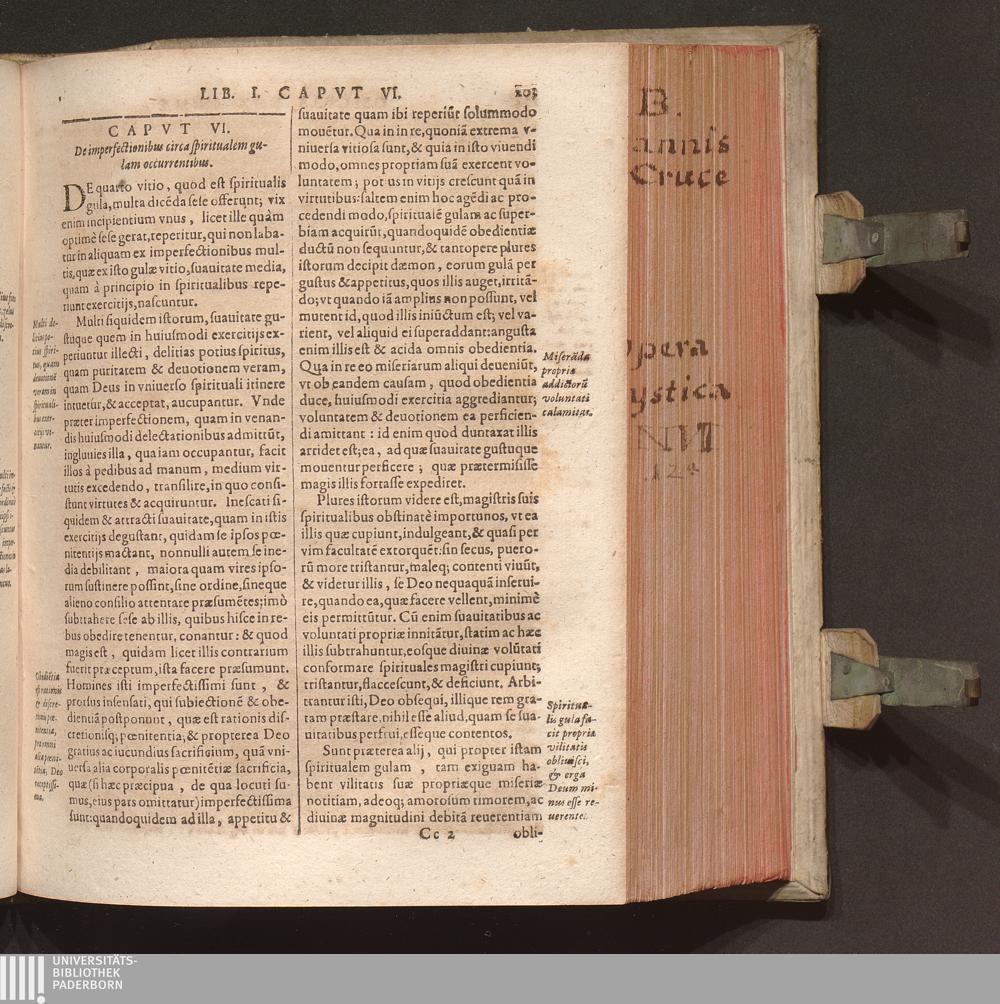 LIB. I. CAPVT VI. 203
CAPVT VI.
De imperfectionibus circa spiritualem gu-
lam occurrentibus.
DE quarto vitio, quod est spiritualis
gula, multa dicēda sese offerunt; vix
enim incipientium vnus, licet ille quàm
optimè sese gerat, reperitur, qui non laba-
tur in aliquam ex imperfectionibus mul-
tis, quæ ex isto gulæ vitio, suauitate media,
quam à principio in spiritualibus repe-
riunt exercitijs, nascuntur.
Multi siquidem istorum, suauitate gu-
stúque quem in huiusmodi exercitijs ex-
periuntur illecti, delitias potius spiritus,
quam puritatem & deuotionem veram,
quam Deus in vniuerso spirituali itinere
intuetur, & acceptat, aucupantur. Vnde
præter imperfectionem, quam in venan-
dis huiusmodi delectationibus admittūt,
ingluuies illa, qua iam occupantur, facit
illos à pedibus ad manum, medium vir-
tutis excedendo, transilire, in quo consi-
stunt virtutes & acquiruntur. Inescati si-
quidem & attracti suauitate, quam in istis
exercitijs degustant, quidam se ipsos pœ-
nitentijs mactant, nonnulli autem se ine-
dia debilitant, maiora quam vires ipso-
rum sustinere possint, sine ordine, sineque
alieno consilio attentare præsumētes; imò
subtrahere sese ab illis, quibus hisce in re-
bus obedire tenentur, conantur: & quod
magis est, quidam licet illis contrarium
fuerit præceptum, ista facere præsumunt.
Homines isti imperfectissimi sunt, &
prorsus insensati, qui subiectionē & obe-
dientiā postponunt, quæ est rationis dis-
cretionisq; pœnitentia; & propterea Deo
gratius ac iucundius sacrificium, quā vni-
uersa alia corporalis pœnitētiæ sacrificia,
quæ (si hæc præcipua, de qua locuti su-
mus, eius pars omittatur) imperfectissima
sunt: quandoquidem ad illa, appetitu &
suauitate quam ibi reperiūt solummodo
mouētur. Qua in in re, quoniā extrema v-
niuersa vitiosa sunt, & quia in isto viuendi
modo, omnes propriam suā exercent vo-
luntatem; potius in vitijs crescunt quā in
virtutibus: saltem enim hoc agēdi ac pro-
cedendi modo, spiritualē gulam ac super-
biam acquirūt, quandoquidē obedientiæ
ductū non sequuntur, & tantopere plures
istorum decipit dæmon, eorum gulā per
gustus & appetitus, quos illis auget, irritā-
do; vt quando iā amplius non possunt, vel
mutent id, quod illis iniūctum est; vel va-
rient, vel aliquid ei superaddant: angusta
enim illis est & acida omnis obedientia.
Qua in re eo miseriarum aliqui deueniūt,
vt ob eandem causam, quod obedientia
duce, huiusmodi exercitia aggrediantur;
voluntatem & deuotionem ea perficien-
di amittant: id enim quod duntaxat illis
arridet est; ea, ad quæ suauitate gustuque
mouentur perficere; quæ prætermisisse
magis illis fortasse expediret.
Plures istorum videre est, magistris suis
spiritualibus obstinatè importunos, vt ea
illis quæ cupiunt, indulgeant, & quasi per
vim facultatē extorquēt: sin secus, puero-
rū more tristantur, maleq; contenti viuūt,
& videtur illis, se Deo nequaquā inserui-
re, quando ea, quæ facere vellent, minimè
eis permittūtur. Cū enim suauitatibus ac
voluntati propriæ innitātur, statim ac hæc
illis subtrahuntur, eosque diuinæ volūtati
conformare spirituales magistri cupiunt;
tristantur, flaccescunt, & deficiunt. Arbi-
trantur isti, Deo obsequi, illique rem gra-
tam præstare, nihil esse aliud, quam se sua-
uitatibus perfrui, esseque contentos.
Sunt præterea alij, qui propter istam
spiritualem gulam, tam exiguam ha-
bent vilitatis suæ propriæque miseriæ
notitiam, adeoq; amorosum timorem, ac
diuinæ magnitudini debitā reuerentiam
Cc 2 obli-
Multi de-
litias po-
tius spiri-
tus, quam
deuotionē
veram in
spirituali-
bus exer-
citijs ve-
nantur.
Obediētia
est rationis
& discre-
tionis pœ-
nitentia,
præ omni
alia pœni-
tētia, Deo
Miserāda
propriæ
addictorū
voluntati
calamitas.
Spiritua-
lis gula fa-
cit propriæ
vilitatis
obliuisci,
& erga
Deum mi-
nus esse re-
uerentes.
B.
annis
Cruce
pera
ystica
NVI
124
UNIVERSITÄTS-
BIBLIOTHEK
PADERBORN